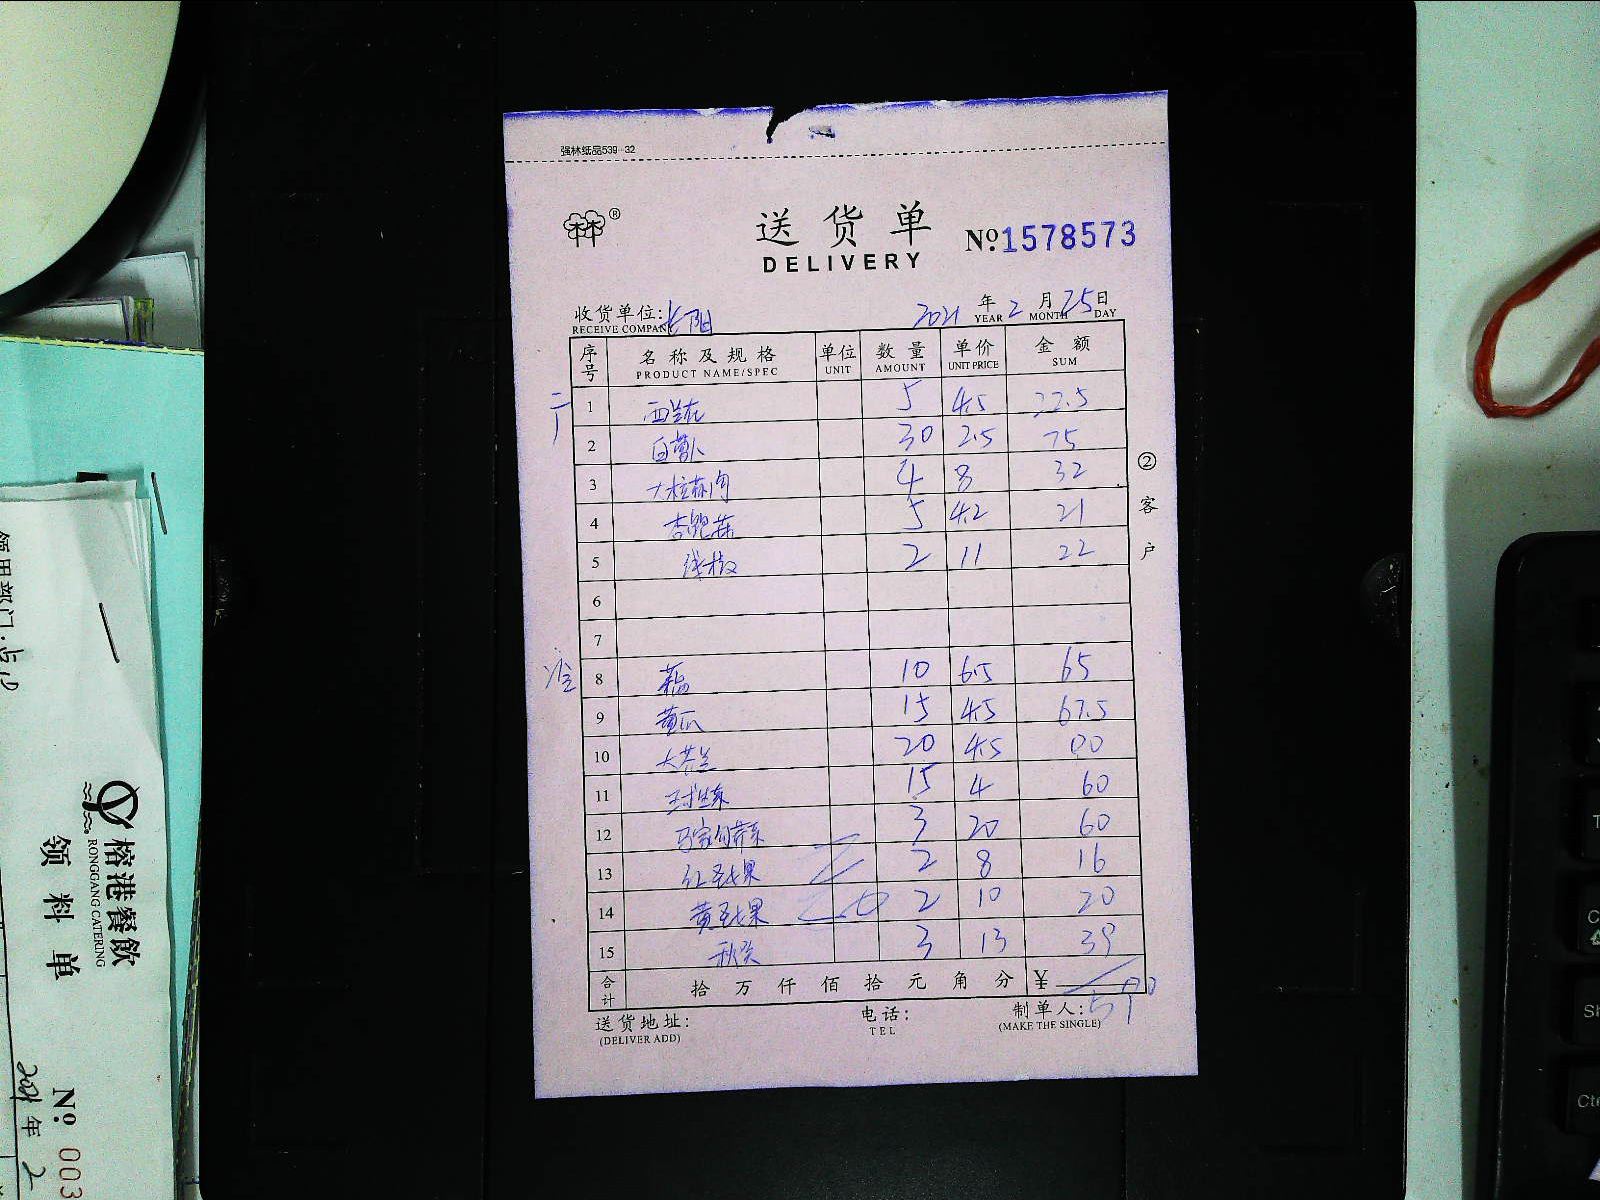 强林纸品539-32
林 ®
送货单
DELIVERY
№1578573
收货单位: 长阳
RECEIVE COMPAN
2021 年 2 月 25 日
YEAR MONTH DAY
序号 名称及规格 单位 数量 单价 金额
PRODUCT NAME/SPEC UNIT AMOUNT UNIT PRICE SUM
1 西兰花 5 4.5 22.5
2 白萝卜 30 2.5 75
3 4 8 32
4 杏鲍菇 5 4.2 21
5 线椒 2 11 22
6
7
8 藕 10 6.5 65
9 黄瓜 15 4.5 67.5
10 大芥兰 20 4.5 90
11 15 4 60
12 3 20 60
13 红圣女果 2 8 16
14 黄圣女果 2 10 20
15 秋葵 3 13 39
合计 拾 万 仟 佰 拾 元 角 分 ¥ 590
送货地址: 电话: 制单人:
(DELIVER ADD) TEL (MAKE THE SINGLE)
②客户
榕港餐飲
RONGGANG CATERING
领料单
№ 003
2021 年 2
领用部门: